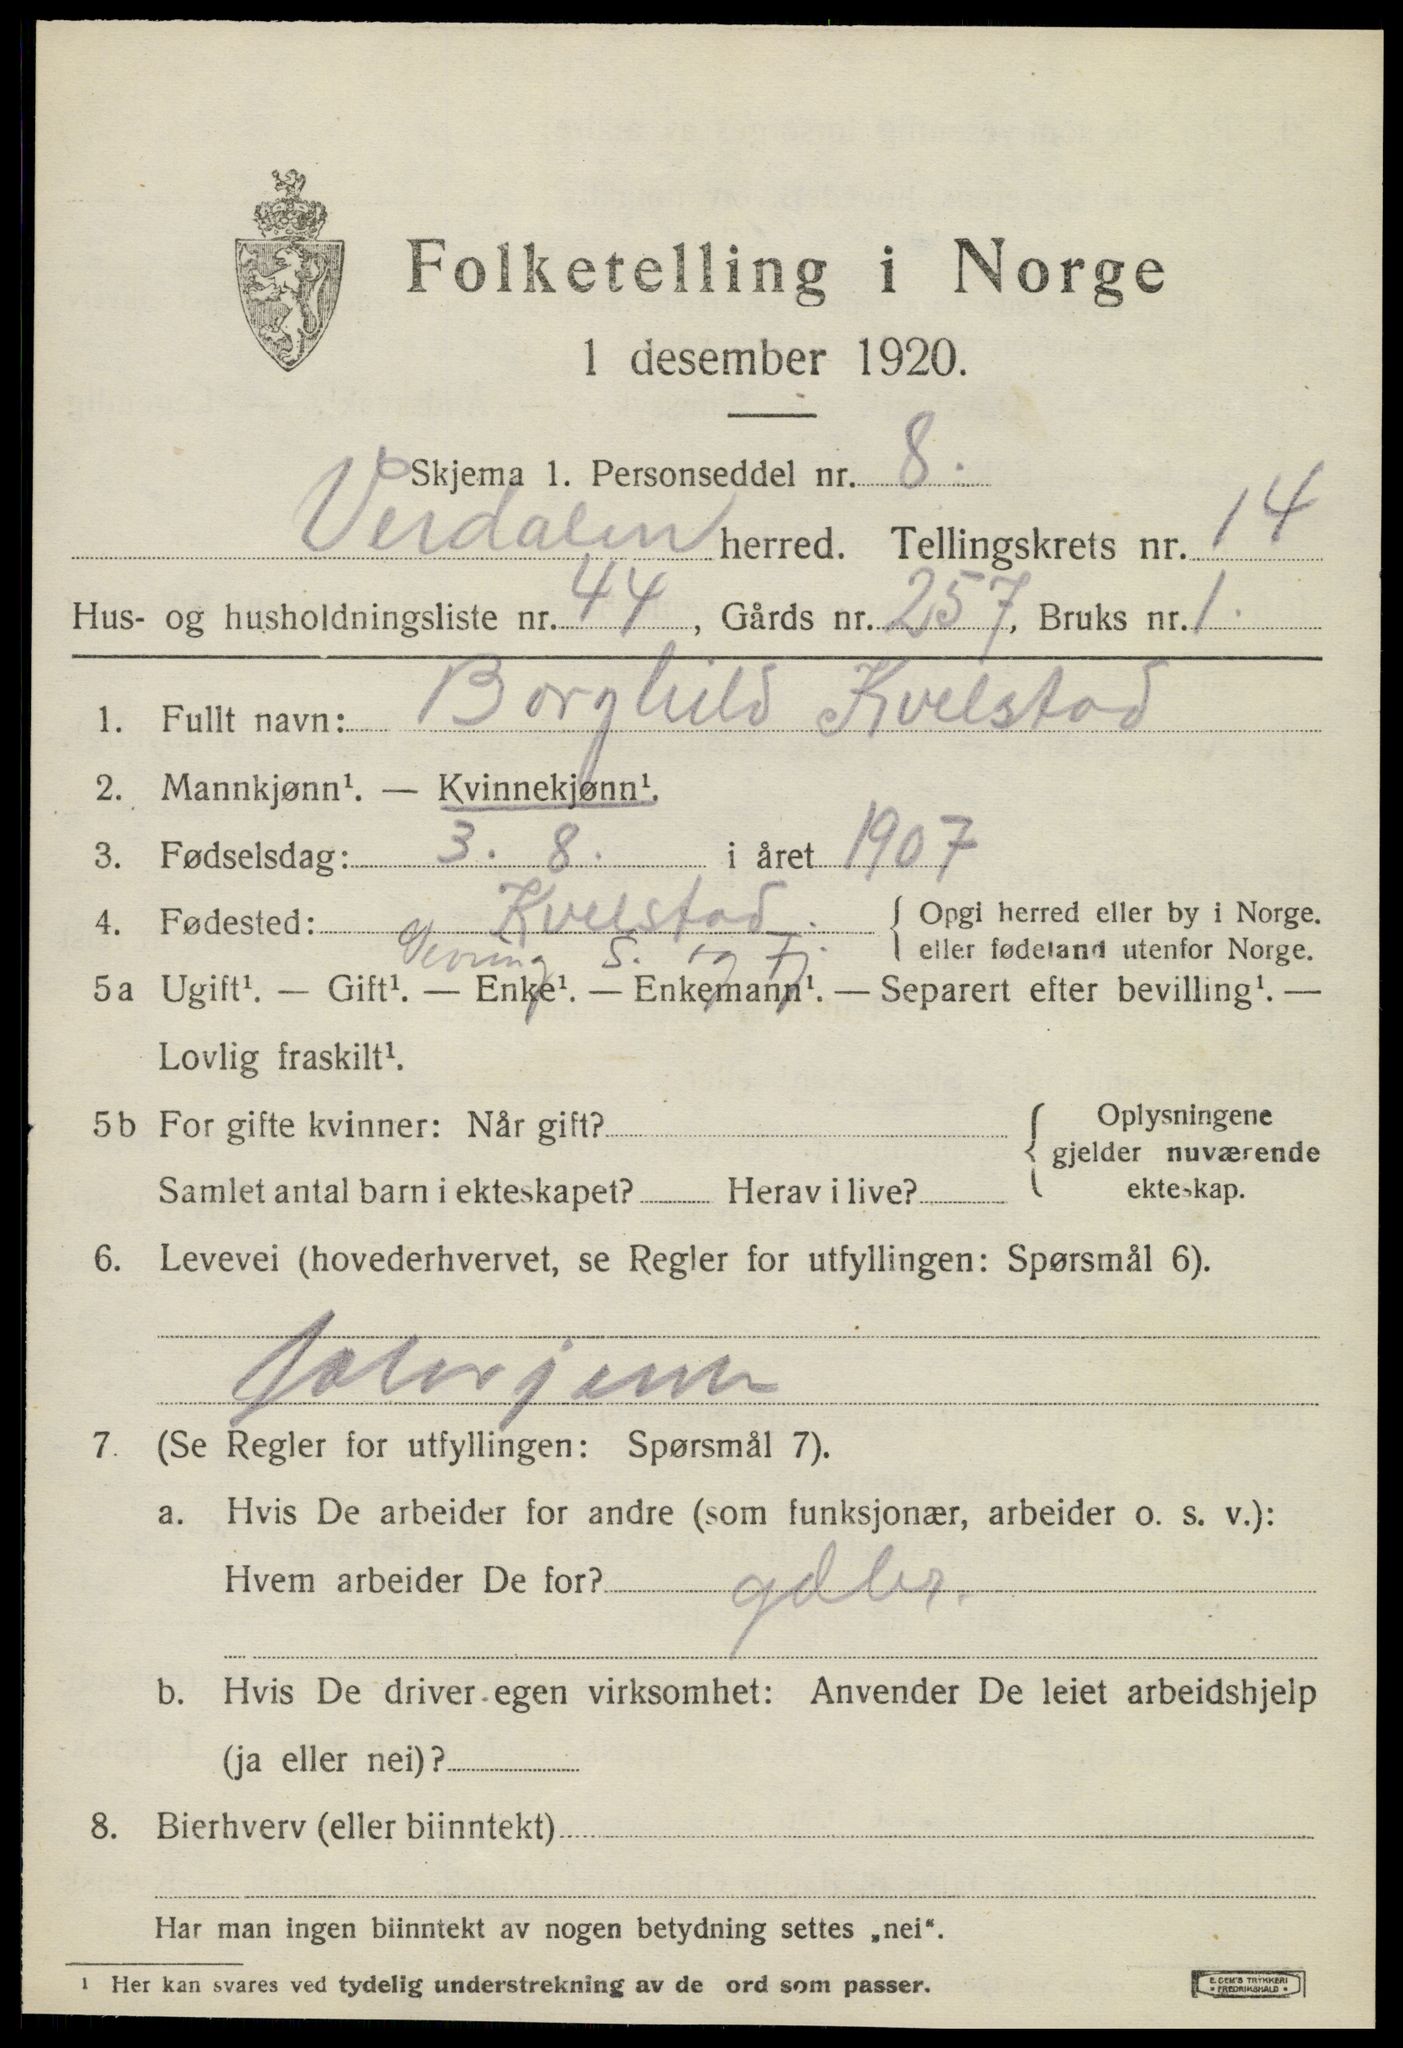 Folketelling i Norge
1 desember 1920.
Skjema 1. Personseddel nr. 8.
Verdalen herred. Tellingskrets nr. 14
Hus- og husholdningsliste nr. 44, Gårds nr. 257, Bruks nr. 1.
1. Fullt navn: Borghild Kvelstad
2. Mannkjønn¹. — Kvinnekjønn¹.
3. Fødselsdag: 3. 8. i året 1907
4. Fødested: Kvelstad. { Opgi herred eller by i Norge.
Vevring S. og Fj. eller fødeland utenfor Norge.
5a Ugift¹. — Gift¹. — Enke¹. — Enkemann¹. — Separert efter bevilling¹. —
Lovlig fraskilt¹.
5b For gifte kvinner: Når gift? { Oplysningene
gjelder nuværende
Samlet antal barn i ekteskapet? Herav i live? ekteskap.
6. Levevei (hovederhvervet, se Regler for utfyllingen: Spørsmål 6).
7. (Se Regler for utfyllingen: Spørsmål 7).
a. Hvis De arbeider for andre (som funksjonær, arbeider o. s. v.):
Hvem arbeider De for? gdbr.
b. Hvis De driver egen virksomhet: Anvender De leiet arbeidshjelp
(ja eller nei)?
8. Bierhverv (eller biinntekt)
Har man ingen biinntekt av nogen betydning settes „nei“.
¹ Her kan svares ved tydelig understrekning av de ord som passer.
E. GEM'S TRYKKERI
• FREDRIKSHALD •